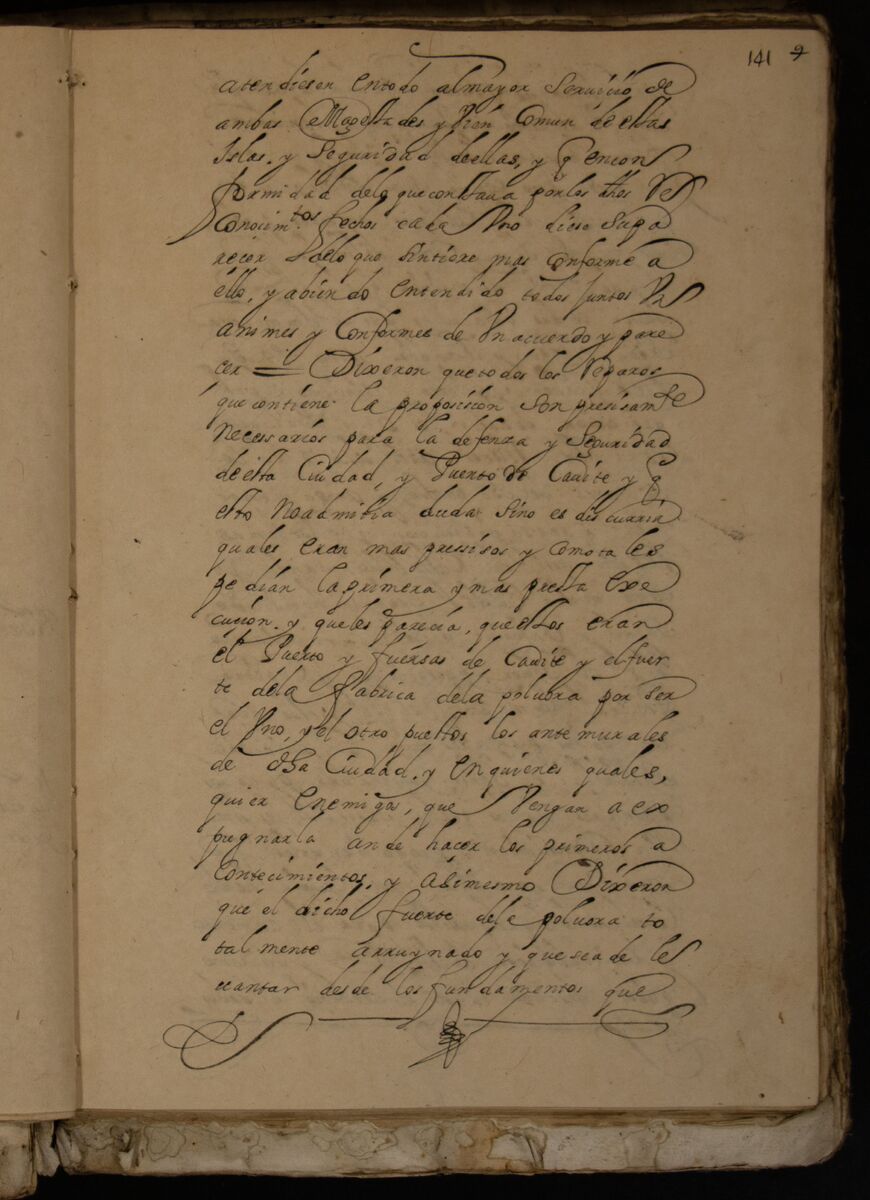 141 9
atendiesen entodo almayor Seruicio de
ambas Magestades y Vien Comun de estas
Islas. y Seguridad deellas, y q encon
formidad delo que constaua por los dhos Re
conocimtos. fechos cada Vno diese supa
recer sobre lo que sintiere mas conforme a
ello, y abiendo entendido todos juntos Vn
animes y Conformes de Vn acuerdo y pare
cer = Dixeron que todos los Reparos
que contiene la proposision son presisamte
necessarios para la defenza y Seguridad
de esta Ciudad, y Puerto de Cauite y q
esto no admitia duda sino es discurrir
quales eran mas pressisos y como tales
pedian la primera y mas presta exe
cucion. y que les parecia, que estos eran
el Puerto y fuersas de Cauite y el fuer
te de la fabrica dela poluora por ser
el Vno, y el otro puestos los antemurales
de esta Ciudad. y en quienes quales,
quier enemigos, que Vengan a ex
pugnarla an de hacer los primeros a
contecimientos, y asimesmo Dixeron
que el dicho fuerte dela poluora to
talmente arruynado y que se a de le
uantar desde los fundamentos que